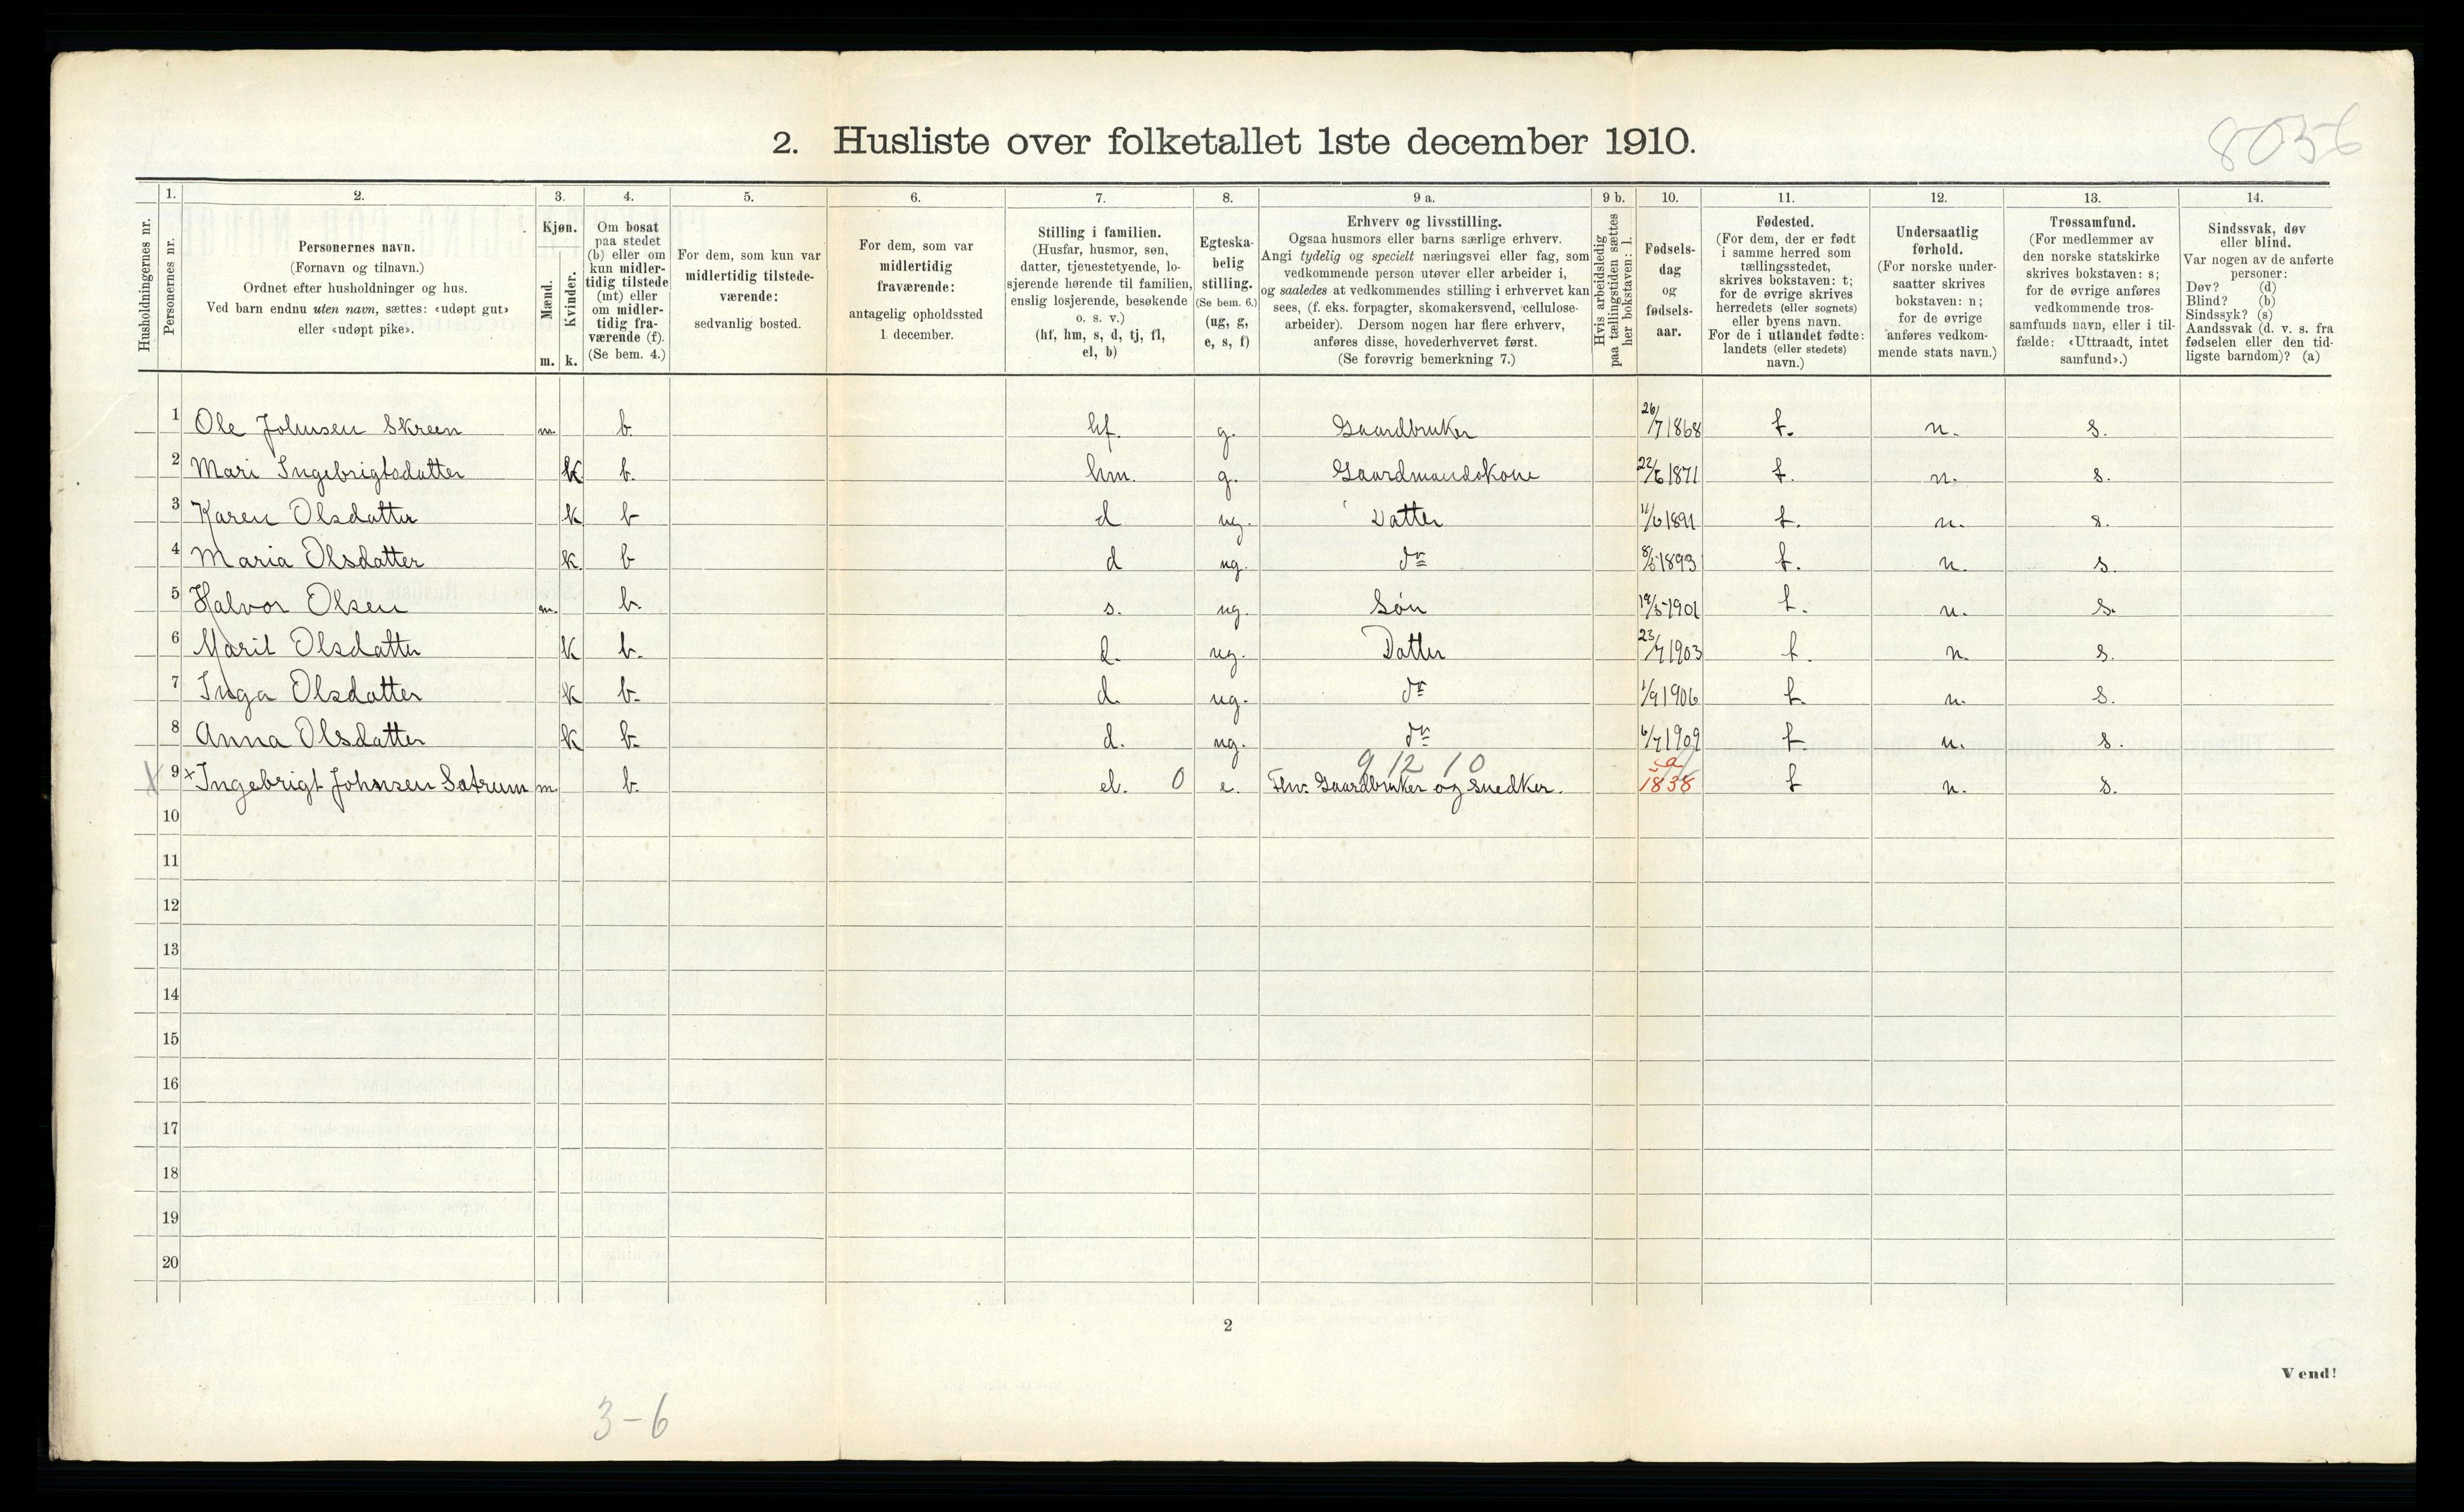 2. Husliste over folketallet 1ste december 1910.
8036
Husholdningernes nr.
1.
Personernes nr.
2.
Personernes navn.
(Fornavn og tilnavn.)
Ordnet efter husholdninger og hus.
Ved barn endnu uten navn, sættes: «udøpt gut»
eller «udøpt pike».
3.
Kjøn.
Mænd.
Kvinder.
m. k.
4.
Om bosat
paa stedet
(b) eller om
kun midler-
tidig tilstede
(mt) eller
om midler-
tidig fra-
værende (f).
(Se bem. 4.)
5.
For dem, som kun var
midlertidig tilstede-
værende:
sedvanlig bosted.
6.
For dem, som var
midlertidig
fraværende:
antagelig opholdssted
1 december.
7.
Stilling i familien.
(Husfar, husmor, søn,
datter, tjenestetyende, lo-
sjerende hørende til familien,
enslig losjerende, besøkende
o. s. v.)
(hf, hm, s, d, tj, fl,
el, b)
8.
Egteska-
belig
stilling.
(Se bem. 6.)
(ug, g,
e, s, f)
9 a.
Erhverv og livsstilling.
Ogsaa husmors eller barns særlige erhverv.
Angi tydelig og specielt næringsvei eller fag, som
vedkommende person utøver eller arbeider i,
og saaledes at vedkommendes stilling i erhvervet kan
sees, (f. eks. forpagter, skomakersvend, cellulose-
arbeider). Dersom nogen har flere erhverv,
anføres disse, hovederhvervet først.
(Se forøvrig bemerkning 7.)
9 b.
Hvis arbeidsledig
paa tællingstiden sættes
her bokstaven: l.
10.
Fødsels-
dag
og
fødsels-
aar.
11.
Fødested.
(For dem, der er født
i samme herred som
tællingsstedet,
skrives bokstaven: t;
for de øvrige skrives
herredets (eller sognets)
eller byens navn.
For de i utlandet fødte:
landets (eller stedets)
navn.)
12.
Undersaatlig
forhold.
(For norske under-
saatter skrives
bokstaven: n;
for de øvrige
anføres vedkom-
mende stats navn.)
13.
Trossamfund.
(For medlemmer av
den norske statskirke
skrives bokstaven: s;
for de øvrige anføres
vedkommende tros-
samfunds navn, eller i til-
fælde: «Uttraadt, intet
samfund».)
14.
Sindssvak, døv
eller blind.
Var nogen av de anførte
personer:
Døv? (d)
Blind? (b)
Sindssyk? (s)
Aandssvak (d. v. s. fra
fødselen eller den tid-
ligste barndom)? (a)
1 Ole Johnsen Skreen m. b. hf. g. Gaardbruker 26/7 1868 t. n. s.
2 Mari Ingebrigtsdatter k b. hm. g. Gaardmandskone 22/6 1871 t. n. s.
3 Karen Olsdatter k b d ug. Datter 11/6 1891 t. n. s.
4 Maria Olsdatter k. b d ug. do 8/5 1893 t. n. s.
5 Halvor Olsen m. b. s. ug. Søn 19/5 1901 t. n. s.
6 Marit Olsdatter k b. d. ug. Datter 23/7 1903 t. n. s.
7 Inga Olsdatter k b. d. ug. do 1/9 1906 t. n. s.
8 Anna Olsdatter k b. d. ug. do 6/7 1909 t. n. s.
9 12 10
ca
X 9 x Ingebrigt Johnsen Satrum m. b. el. 0 e. Fhv. Gaardbruker og Snedker. 1838 t n. s.
10
11
12
13
14
15
16
17
18
19
20
2
Vend!
3-6